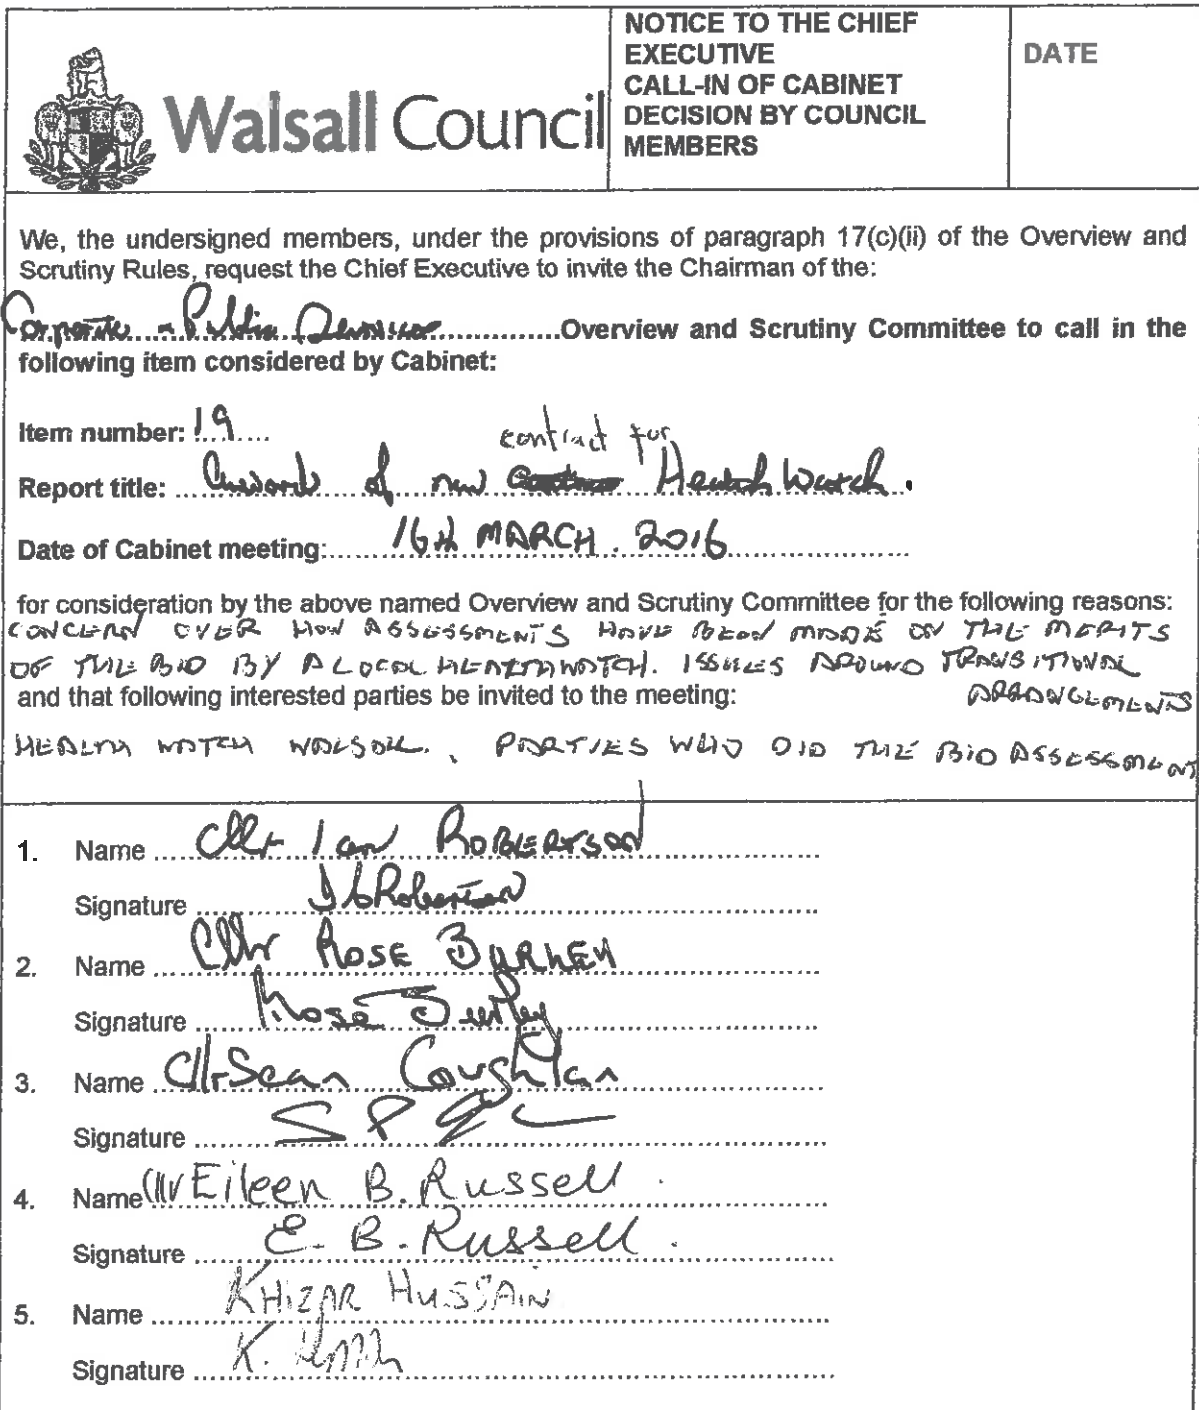 Walsall Council
NOTICE TO THE CHIEF
EXECUTIVE
CALL-IN OF CABINET
DECISION BY COUNCIL
MEMBERS
DATE
We, the undersigned members, under the provisions of paragraph 17(c)(ii) of the Overview and
Scrutiny Rules, request the Chief Executive to invite the Chairman of the:
Corporate & Public Services..............Overview and Scrutiny Committee to call in the
following item considered by Cabinet:
Item number: 19
contract for
Report title: Award of new Health Watch.
Date of Cabinet meeting: 16th MARCH. 2016
for consideration by the above named Overview and Scrutiny Committee for the following reasons:
CONCERN OVER HOW ASSESSMENTS HAVE BEEN MADE ON THE MERITS
OF THE BID BY A LOCAL HEALTHWATCH. ISSUES AROUND TRANSITIONAL
ARRANGEMENTS
and that following interested parties be invited to the meeting:
HEALTH WATCH WALSALL., PARTIES WHO DID THE BID ASSESSMENT
1. Name Cllr Ian ROBERTSON
Signature I Robertson
2. Name Cllr ROSE BURLEY
Signature Rose Burley
3. Name Cllr Sean Coughlan
Signature
4. Name Cllr Eileen B. Russell.
Signature E. B. Russell.
5. Name KHIZAR HUSSAIN
Signature K.